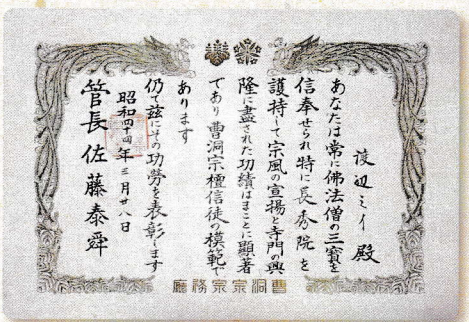 渡辺ミイ殿
あなたは常に佛法僧の三寳を
信奉せられ特に長秀院を
護持して宗風の宣揚と寺門の興
隆に盡された功績はまことに顯著
であり曹洞宗檀信徒の模範で
あります
仍て茲にその功勞を表彰します
昭和四十四年三月廿八日
管長佐藤泰舜
廳務宗宗洞曹